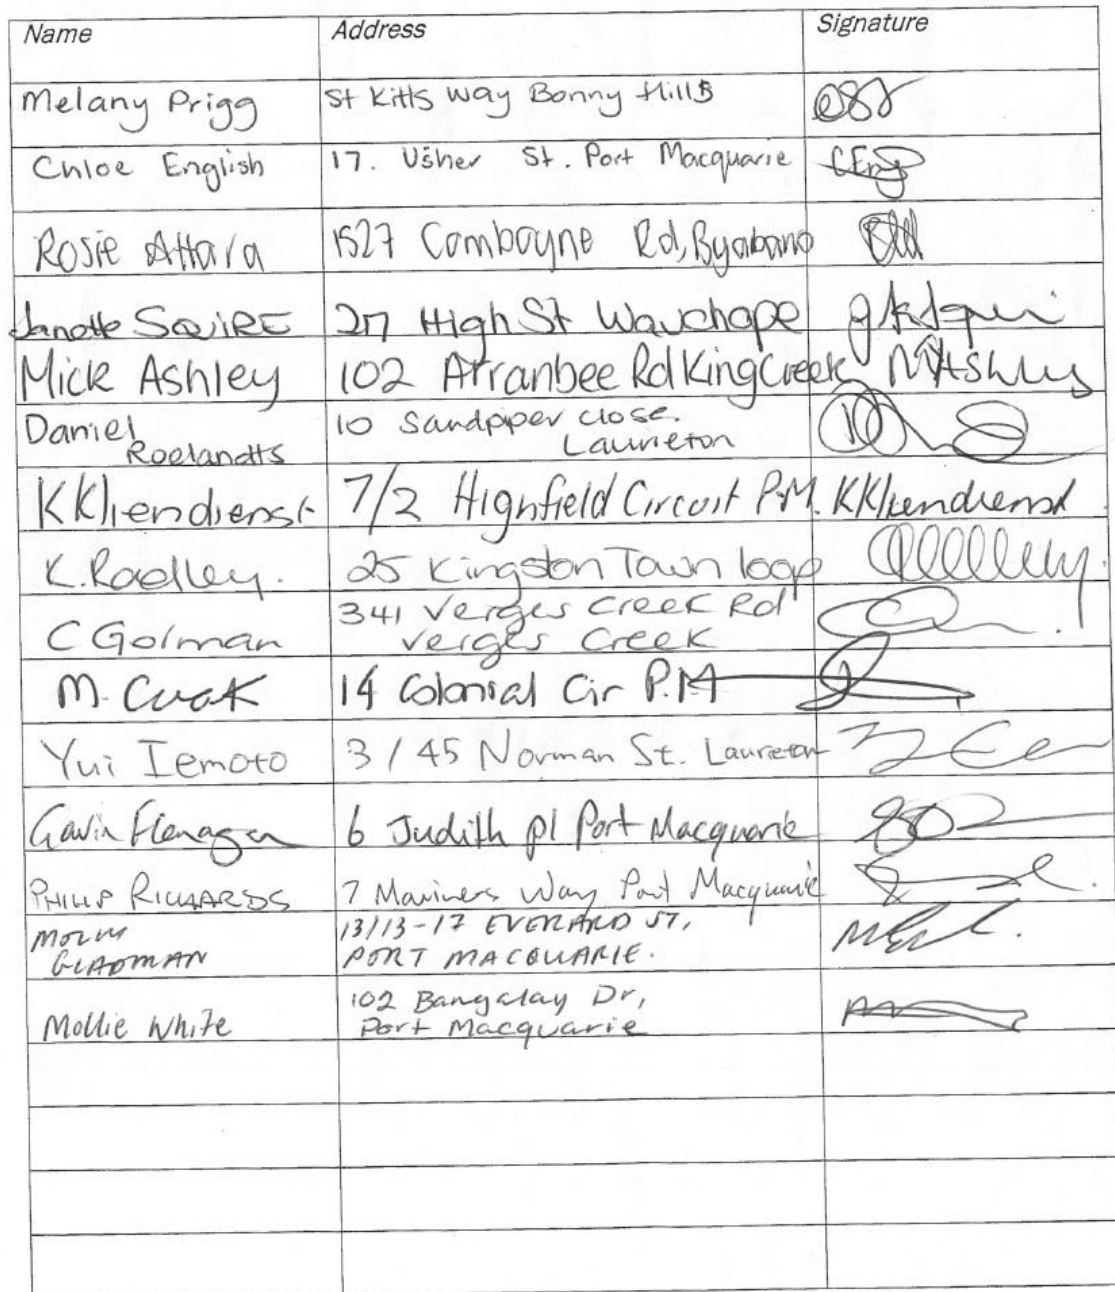 Name Address Signature
Melany Prigg St Kitts Way Bonny Hills
Chloe English 17. Usher St. Port Macquarie CEng
Rosie Attara 1527 Comboyne Rd, Byabarra
Janette SQUIRE 27 High St Wauchope
Mick Ashley 102 Arranbee Rd King Creek MAShley
Daniel 10 Sandpiper close.
Roelandts Laurieton
K Kliendienst 7/2 Highfield Circuit P.M. K Kliendienst
K. Radley. 25 Kingston Town loop
C Golman 341 Verges Creek Rd
Verges Creek
M. Cuak 14 Colonial Cir P.M
Yui Iemoto 3 / 45 Norman St. Laurieton
Gavin Flanagan 6 Judith pl Port Macquarie
PHILIP RICHARDS 7 Mariners Way Port Macquarie
MOLLY 13/13-17 EVERARD ST,
GLADMAN PORT MACQUARIE.
102 Bangalay Dr,
Mollie White Port Macquarie